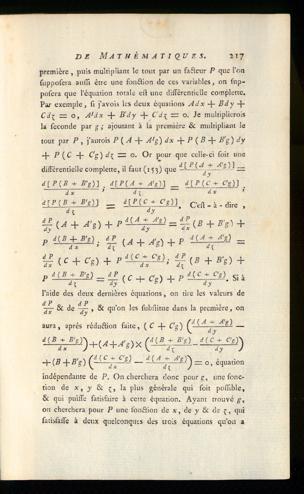 DE MATHÉMATIQUES. 217
premiere, puis multipliant le tout par un facteur P que l'on
supposera aussi être une fonction de ces variables, on sup-
posera que l'équation totale est une différentielle complette.
Par exemple, si j'avois les deux équations Adx + Bdy +
Cdz = 0, A'dx + B'dy + C'dz = 0. Je multiplierois
la seconde par g; ajoutant à la premiere & multipliant le
tout par P, j'aurois P (A + A'g) dx + P (B + B'g) dy
+ P (C + C'g) dz = 0. Or pour que celle-ci soit une
différentielle complette, il faut (153) que d[P(A + A'g)]/dy =
d[P(B + B'g)]/dx ; d[P(A + A'g)]/dz = d[P(C + C'g)]/dx ;
d[P(B + B'g)]/dz = d[P(C + C'g)]/dy. C'est-à-dire,
dP/dy (A + A'g) + P d(A + A'g)/dy = dP/dx (B + B'g) +
P d(B + B'g)/dx ; dP/dz (A + A'g) + P d(A + A'g)/dz =
dP/dx (C + C'g) + P d(C + C'g)/dx ; dP/dz (B + B'g) +
P d(B + B'g)/dz = dP/dy (C + C'g) + P d(C + C'g)/dy. Si à
l'aide des deux dernieres équations, on tire les valeurs de
dP/dx & de dP/dy, & qu'on les substitue dans la premiere, on
aura, après réduction faite, (C + C'g) (d(A + A'g)/dy —
d(B + B'g)/dx) + (A + A'g) × (d(B + B'g)/dz — d(C + C'g)/dy)
+ (B + B'g) (d(C + C'g)/dx — d(A + A'g)/dz) = 0, équation
indépendante de P. On cherchera donc pour g, une fonc-
tion de x, y & z, la plus générale qui soit possible,
& qui puisse satisfaire à cette équation. Ayant trouvé g,
on cherchera pour P une fonction de x, de y & de z, qui
satisfasse à deux quelconques des trois équations qu'on a